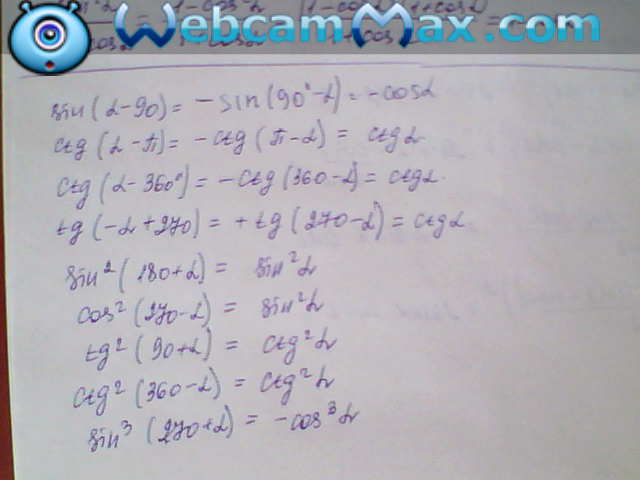 WebcamMax.com
sin(α-90)= -sin(90°-α)= -cosα
ctg(α-π)= -ctg(π-α) = ctgα
ctg(α-360°)= -ctg(360-α)= ctgα.
tg(-α+270) = +tg(270-α)= ctgα.
sin²(180+α)= sin²α
cos²(270-α) = sin²α
tg²(90+α) = ctg²α
ctg²(360-α) = ctg²α
sin³(270+α) = -cos³α